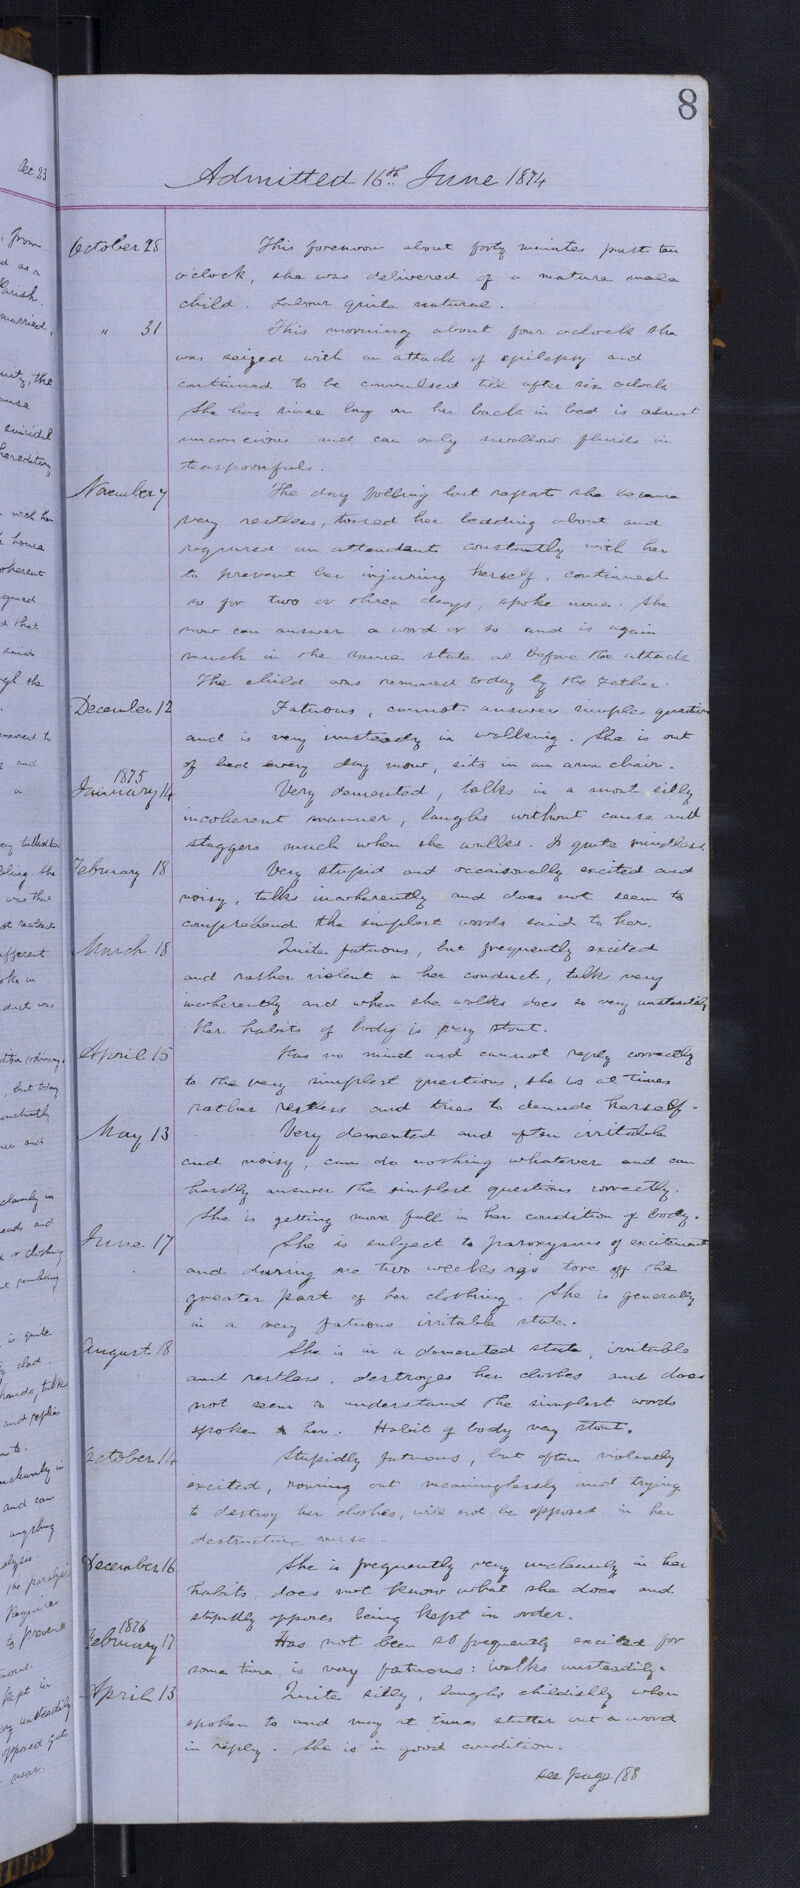 8
Admitted 16th June 1874
October 28 This forenoon about forty minutes past ten
o'clock, she was delivered of a mature male
child. Labour quite natural.
" 31 This morning about four o'clock she
was seized with an attack of epilepsy and
continued to be convulsed till after six o'clock
She has since lay on her back in bed is almost
unconcious and can only swallow fluids in
teaspoonfuls.
November 7 The day folling last report she became
very restless, tossed her bedding about and
required an attendant constantly with her
to prevent her injuring herself, continued
so for two or three days, spoke none. She
now can answer a word or so and is again
much in the same state as before the attack
The child was removed today by the Father.
December 12 Fatuous, cannot answer simple question
and is very unsteady in walking. She is out
of bed every day now, sits in an arm chair.
1875
January 14 Very demented, talks in a most silly
incoherent manner, laughs without cause and
staggers much when she walks. Is quite mindless.
February 18 Very stupid and occaisonally excited and
noisy, talks incoherently and does not seem to
comprehend the simplest words said to her.
March 18 Quite fatuous, but frequently excited
and rather violent in her conduct, talks very
incoherently and when she walks does so very unsteadily
Her habits of body is very stout.
April 15 Has no mind and cannot reply correctly
to the very simplest questions, she is at times
rather restless and tries to denude herself.
May 13 Very demented and often irritable
and noisy, can do nothing whatever and can
hardly answer the simplest questions correctly.
She is getting more full in her condition of body.
June 17 She is subject to paroxysms of excitement
and during one two weeks ago tore off the
greater part of her clothing. She is generally
in a very fatuous irritable state.
August 18 She is in a demented state, irritable
and restless, destroyes her clothes and does
not seem to understand the simplest words
spoken to her. Habit of body very stout.
October 14 Stupidly fatuous, but often violently
excited, roaring out meaninglessly and trying
to destroy her clothes, will not be opposed in her
destructive
December 16 She is frequently very uncleanly in her
habits does not know what she does and
stupidly opposes being kept in order.
1876
February 17 Has not been so frequently excited for
some time, is very fatuous: walks unsteadily.
April 13 Quite silly, laughs childishly when
spoken to and may at times stutter out a word
in reply. She is in good condition.
see page 188